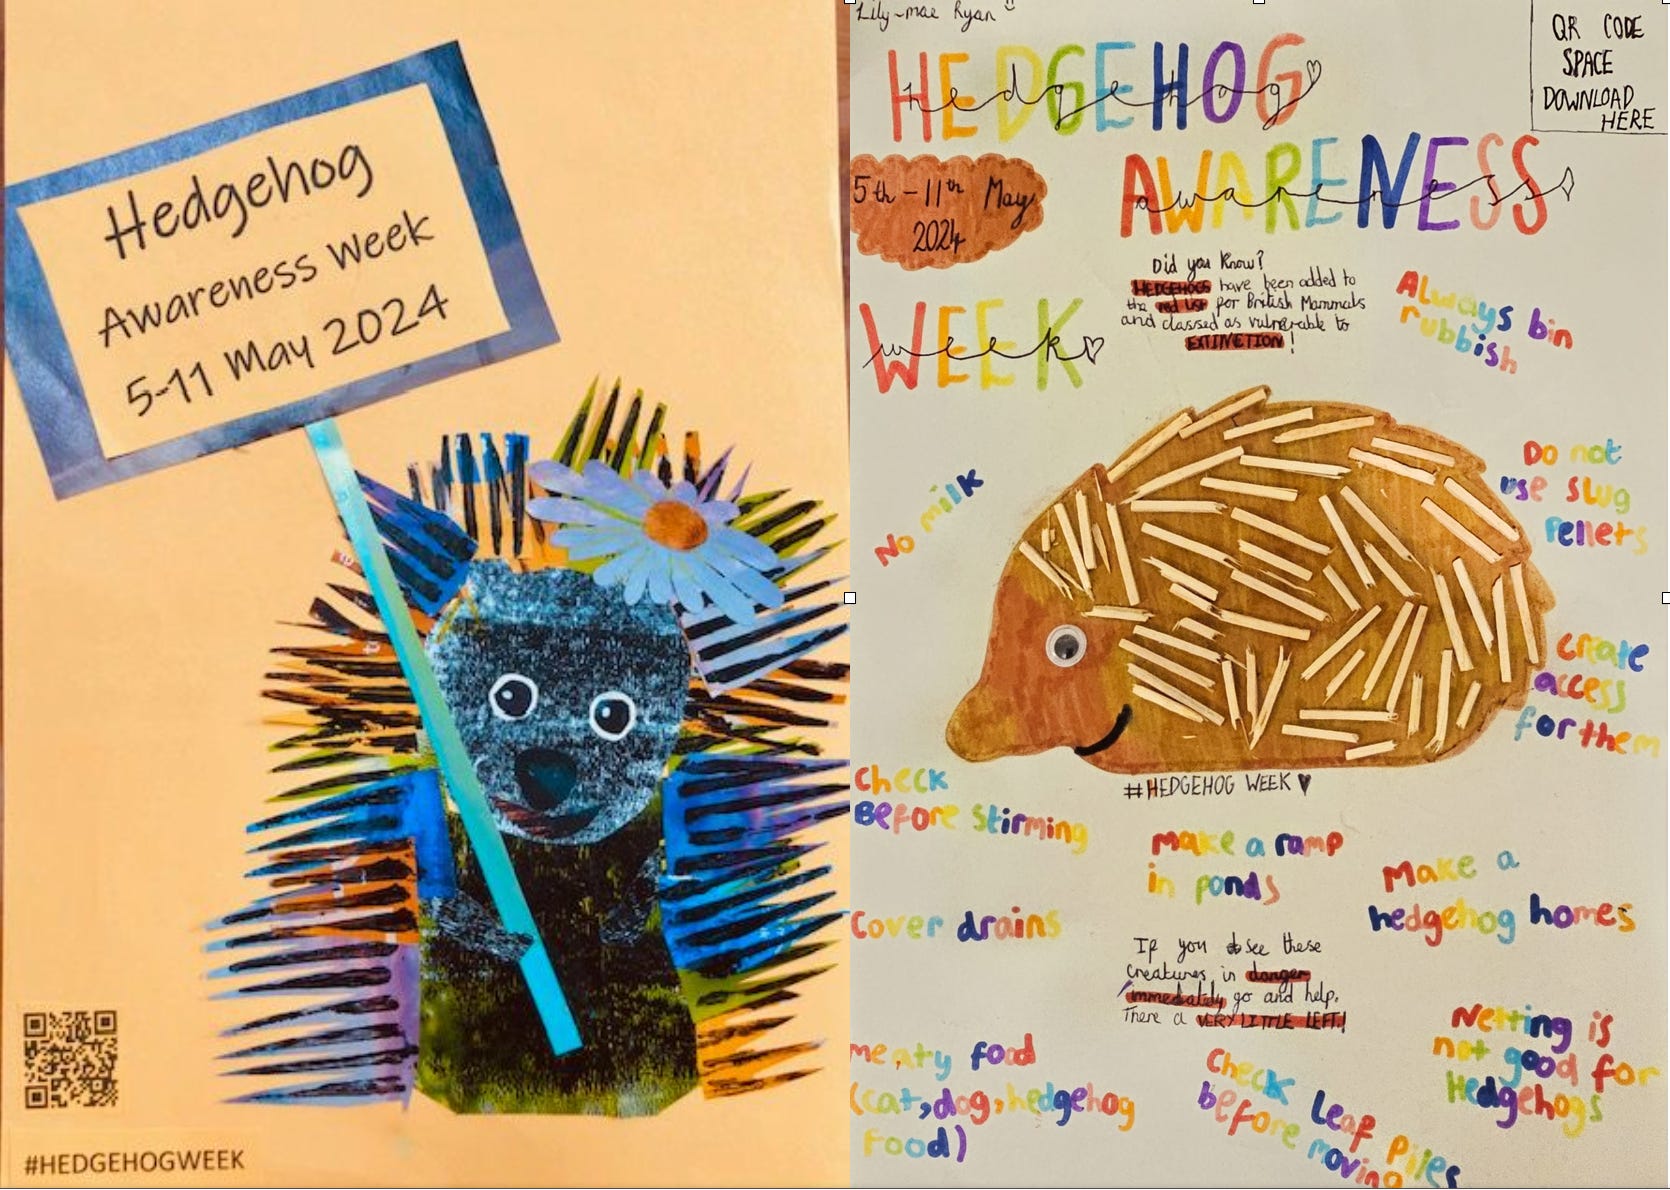 Hedgehog
Awareness Week
5-11 May 2024
#HEDGEHOGWEEK
Lily-mae Ryan
QR CODE
SPACE
DOWNLOAD
HERE
HEDGEHOG
hedgehog
AWARENESS
awareness
5th - 11th May
2024
WEEK
week
Did you know?
HEDGEHOGS have been added to
the red list for British Mammals
and classed as vulnerable to
EXTINCTION!
Always bin
rubbish
No milk
Do not
use slug
pellets
create
access
for them
#HEDGEHOG WEEK
Check
Before stirming
Make a ramp
in ponds
Make a
hedgehog homes
Cover drains
If you see these
creatures in danger
immediately go and help.
There a VERY LITTLE LEFT!
meaty food
(cat, dog, hedgehog
food)
Check
before Leaf Piles
moving
Netting is
not good for
Hedgehogs